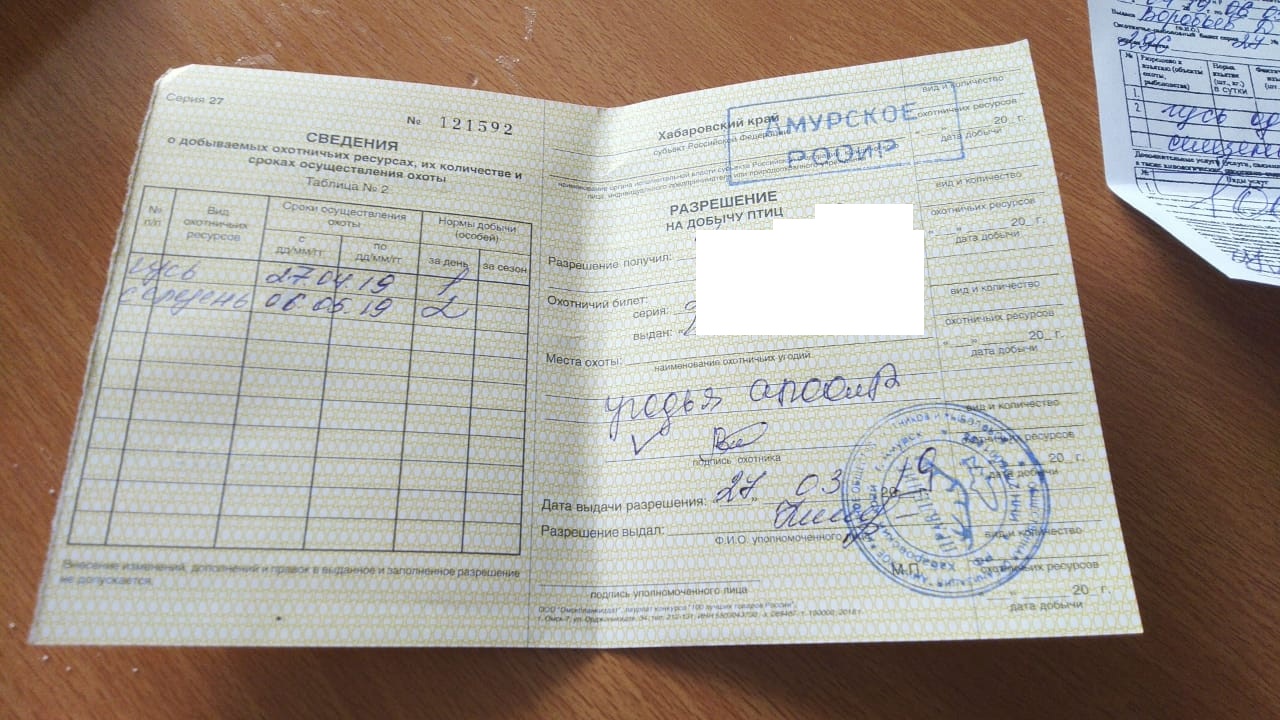 Серия 27
№ 121592
СВЕДЕНИЯ
о добываемых охотничьих ресурсах, их количестве и
сроках осуществления охоты
Таблица № 2
№ п/п
Вид охотничьих ресурсов
Сроки осуществления охоты
Нормы добычи (особей)
с дд/мм/гг
по дд/мм/гг
за день
за сезон
гусь 27 04 19 1
селезень 06 05 19 2
Внесение изменений, дополнений и правок в выданное и заполненное разрешение
не допускается.
Хабаровский край
субъект Российской Федерации
АМУРСКОЕ
РООиР
РАЗРЕШЕНИЕ
НА ДОБЫЧУ ПТИЦ
Разрешение получил:
Охотничий билет:
серия:
выдан:
Места охоты:
наименование охотничьих угодий
угодья
подпись охотника
Дата выдачи разрешения: 27 03 2019
Разрешение выдал:
Ф.И.О. уполномоченного
М.П.
подпись уполномоченного лица
ООО "Омскбланкиздат", лауреат конкурса "100 лучших товаров России",
вид и количество
охотничьих ресурсов
" " 20 г.
дата добычи
вид и количество
охотничьих ресурсов
" " 20 г.
дата добычи
вид и количество
охотничьих ресурсов
" " 20 г.
дата добычи
вид и количество
охотничьих ресурсов
20 г.
дата добычи
вид и количество
охотничьих ресурсов
" " 20 г.
дата добычи
Воробьев
№
Разрешено к изъятию (объекты охоты, рыболовства)
Норма изъятия (шт., кг.) в сутки
1
2
гусь
селезень